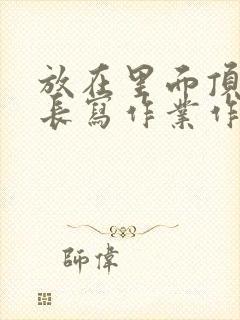 放在里而頂
長寫作業作
師偉